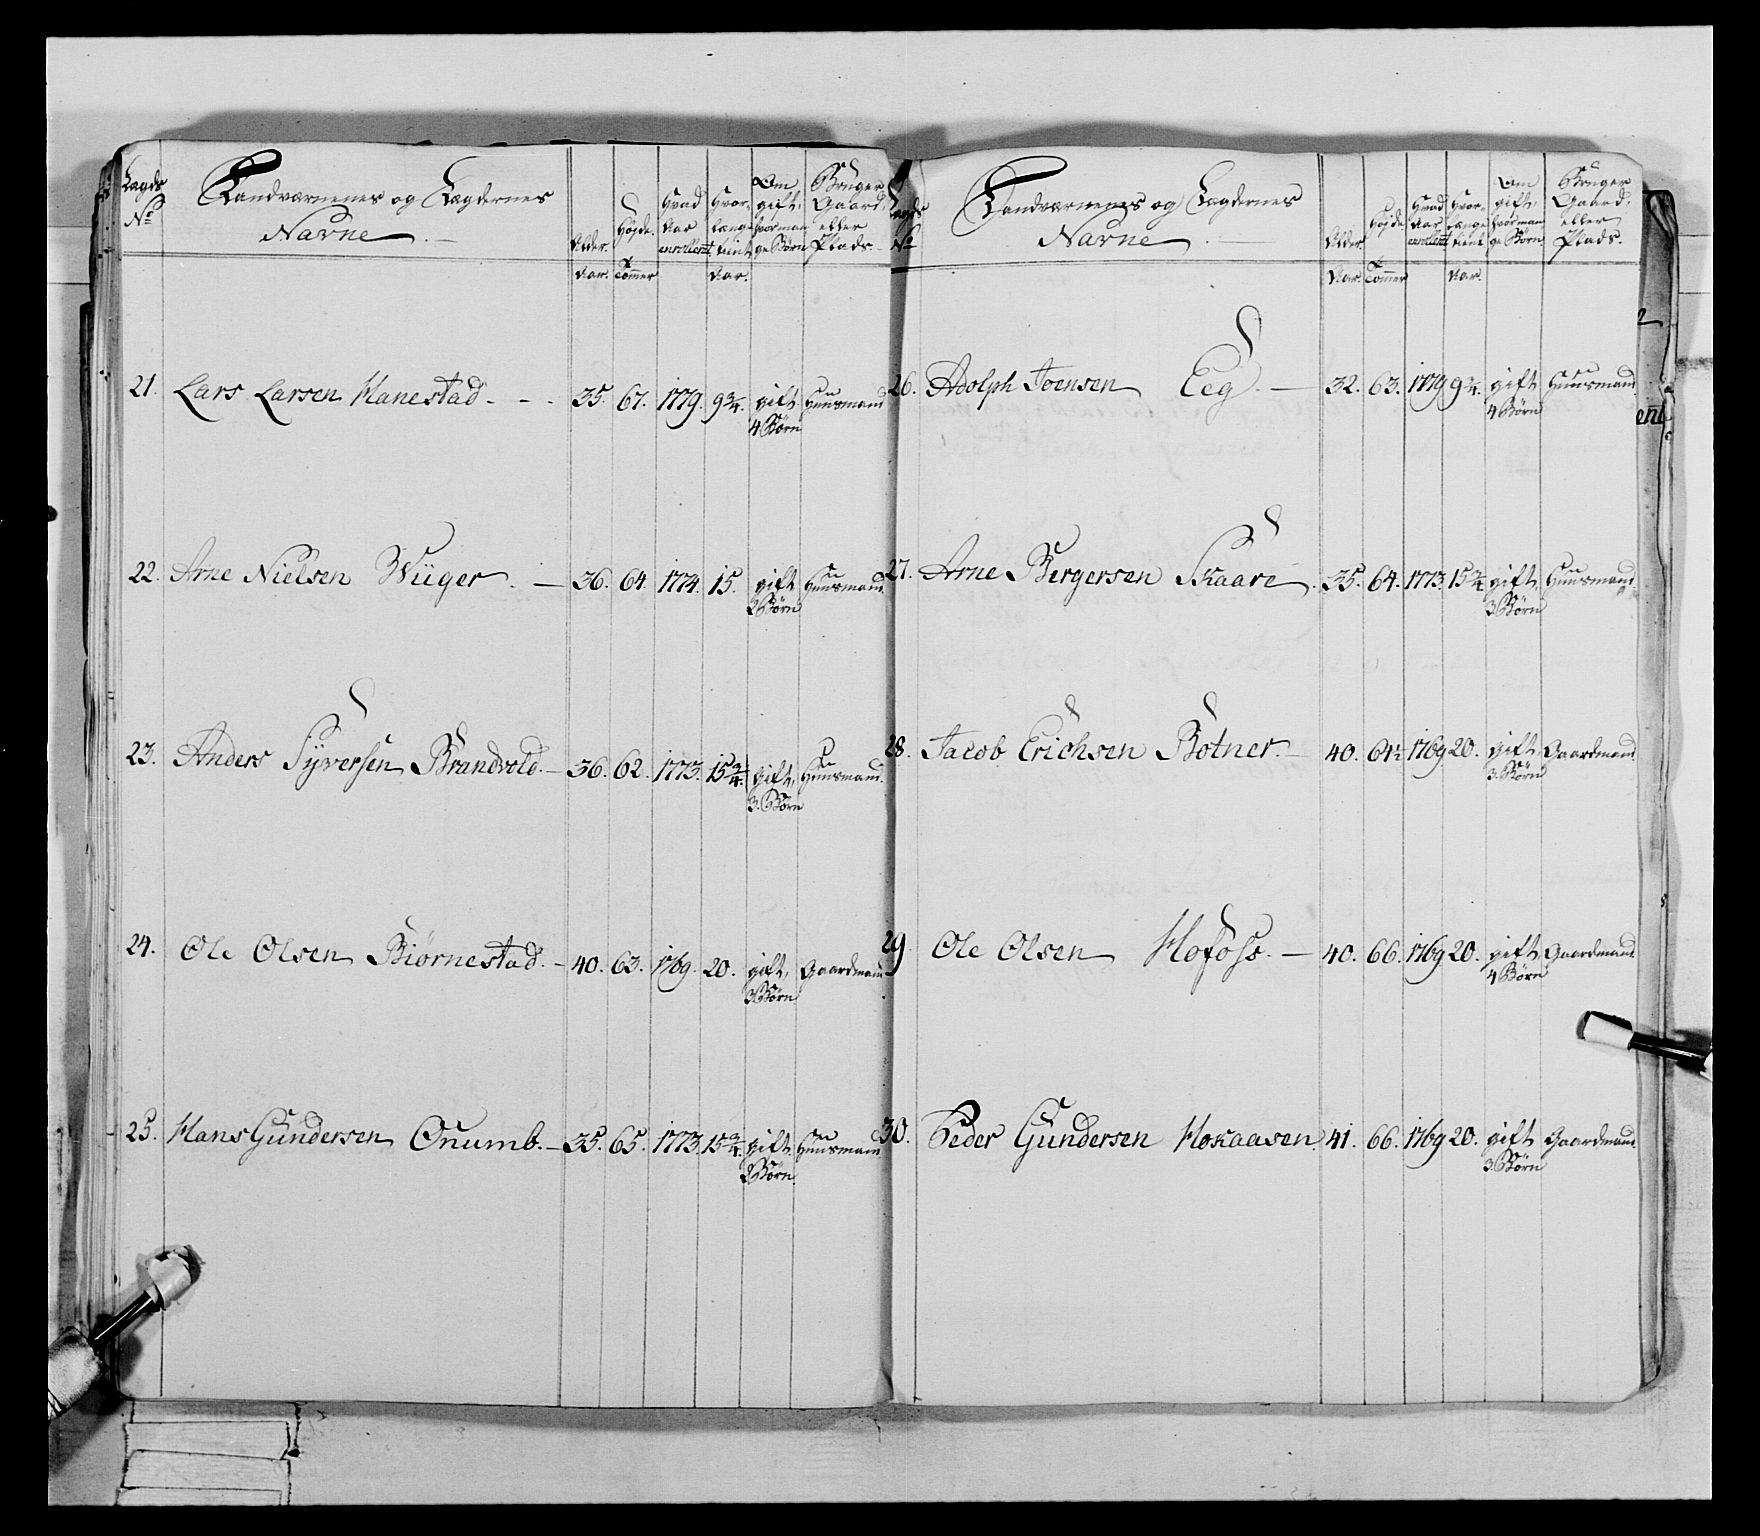 Lægds No | Landværnenes og Lægdernes Navne | Alder. Aar. | Højde. Tommer | Hvad Aar enrollert | Hvor-længe tient Aar. | Om gift, hvor man-ge Børn | Bruger Gaard eller Plads.
21. Lars Larsen Hanestad. - - 35. 67. 1779. 9¾. gift Huusmand
4 Børn
22. Arne Nielsen Wüger. — 36. 64. 1774. 15. gift Huusmand.
2 Børn
23. Anders Syversen Brandvold. — 36. 62. 1773. 15¾. gift, Huusmand.
3. Børn
24. Ole Olsen Biørnestad. — 40. 63. 1769. 20. gift, Gaardmand
3 Børn
25. Hans Gundersen Onumb. — 35. 65. 1773. 15¾. gift Huusmand.
2 Børn.
Lægds No | Landværnenes og Lægdernes Navne | Alder. Aar. | Højde Tommer | Hvad Aar enrollert | Hvor-længe tient Aar. | Om gift, hvor man-ge Børn | Bruger Gaard, eller Plads.
26. Adolph Joensen Eeg. — 32. 63. 1779 9¾. gift Huusmand.
4 Børn
27. Arne Bergersen Skaare. 35. 64. 1773. 15¾ gift, Huusmand.
3 Børn
28. Jacob Erichsen Botner. — 40. 61½ 1769 20. gift Gaardmand.
3 Børn
29. Ole Olsen Hofoss. — 40. 66. 1769 20. gift Gaardmand.
4 Børn
30. Peder Gundersen Hokaasen 41. 66. 1769 20. gift Gaardmand.
3 Børn